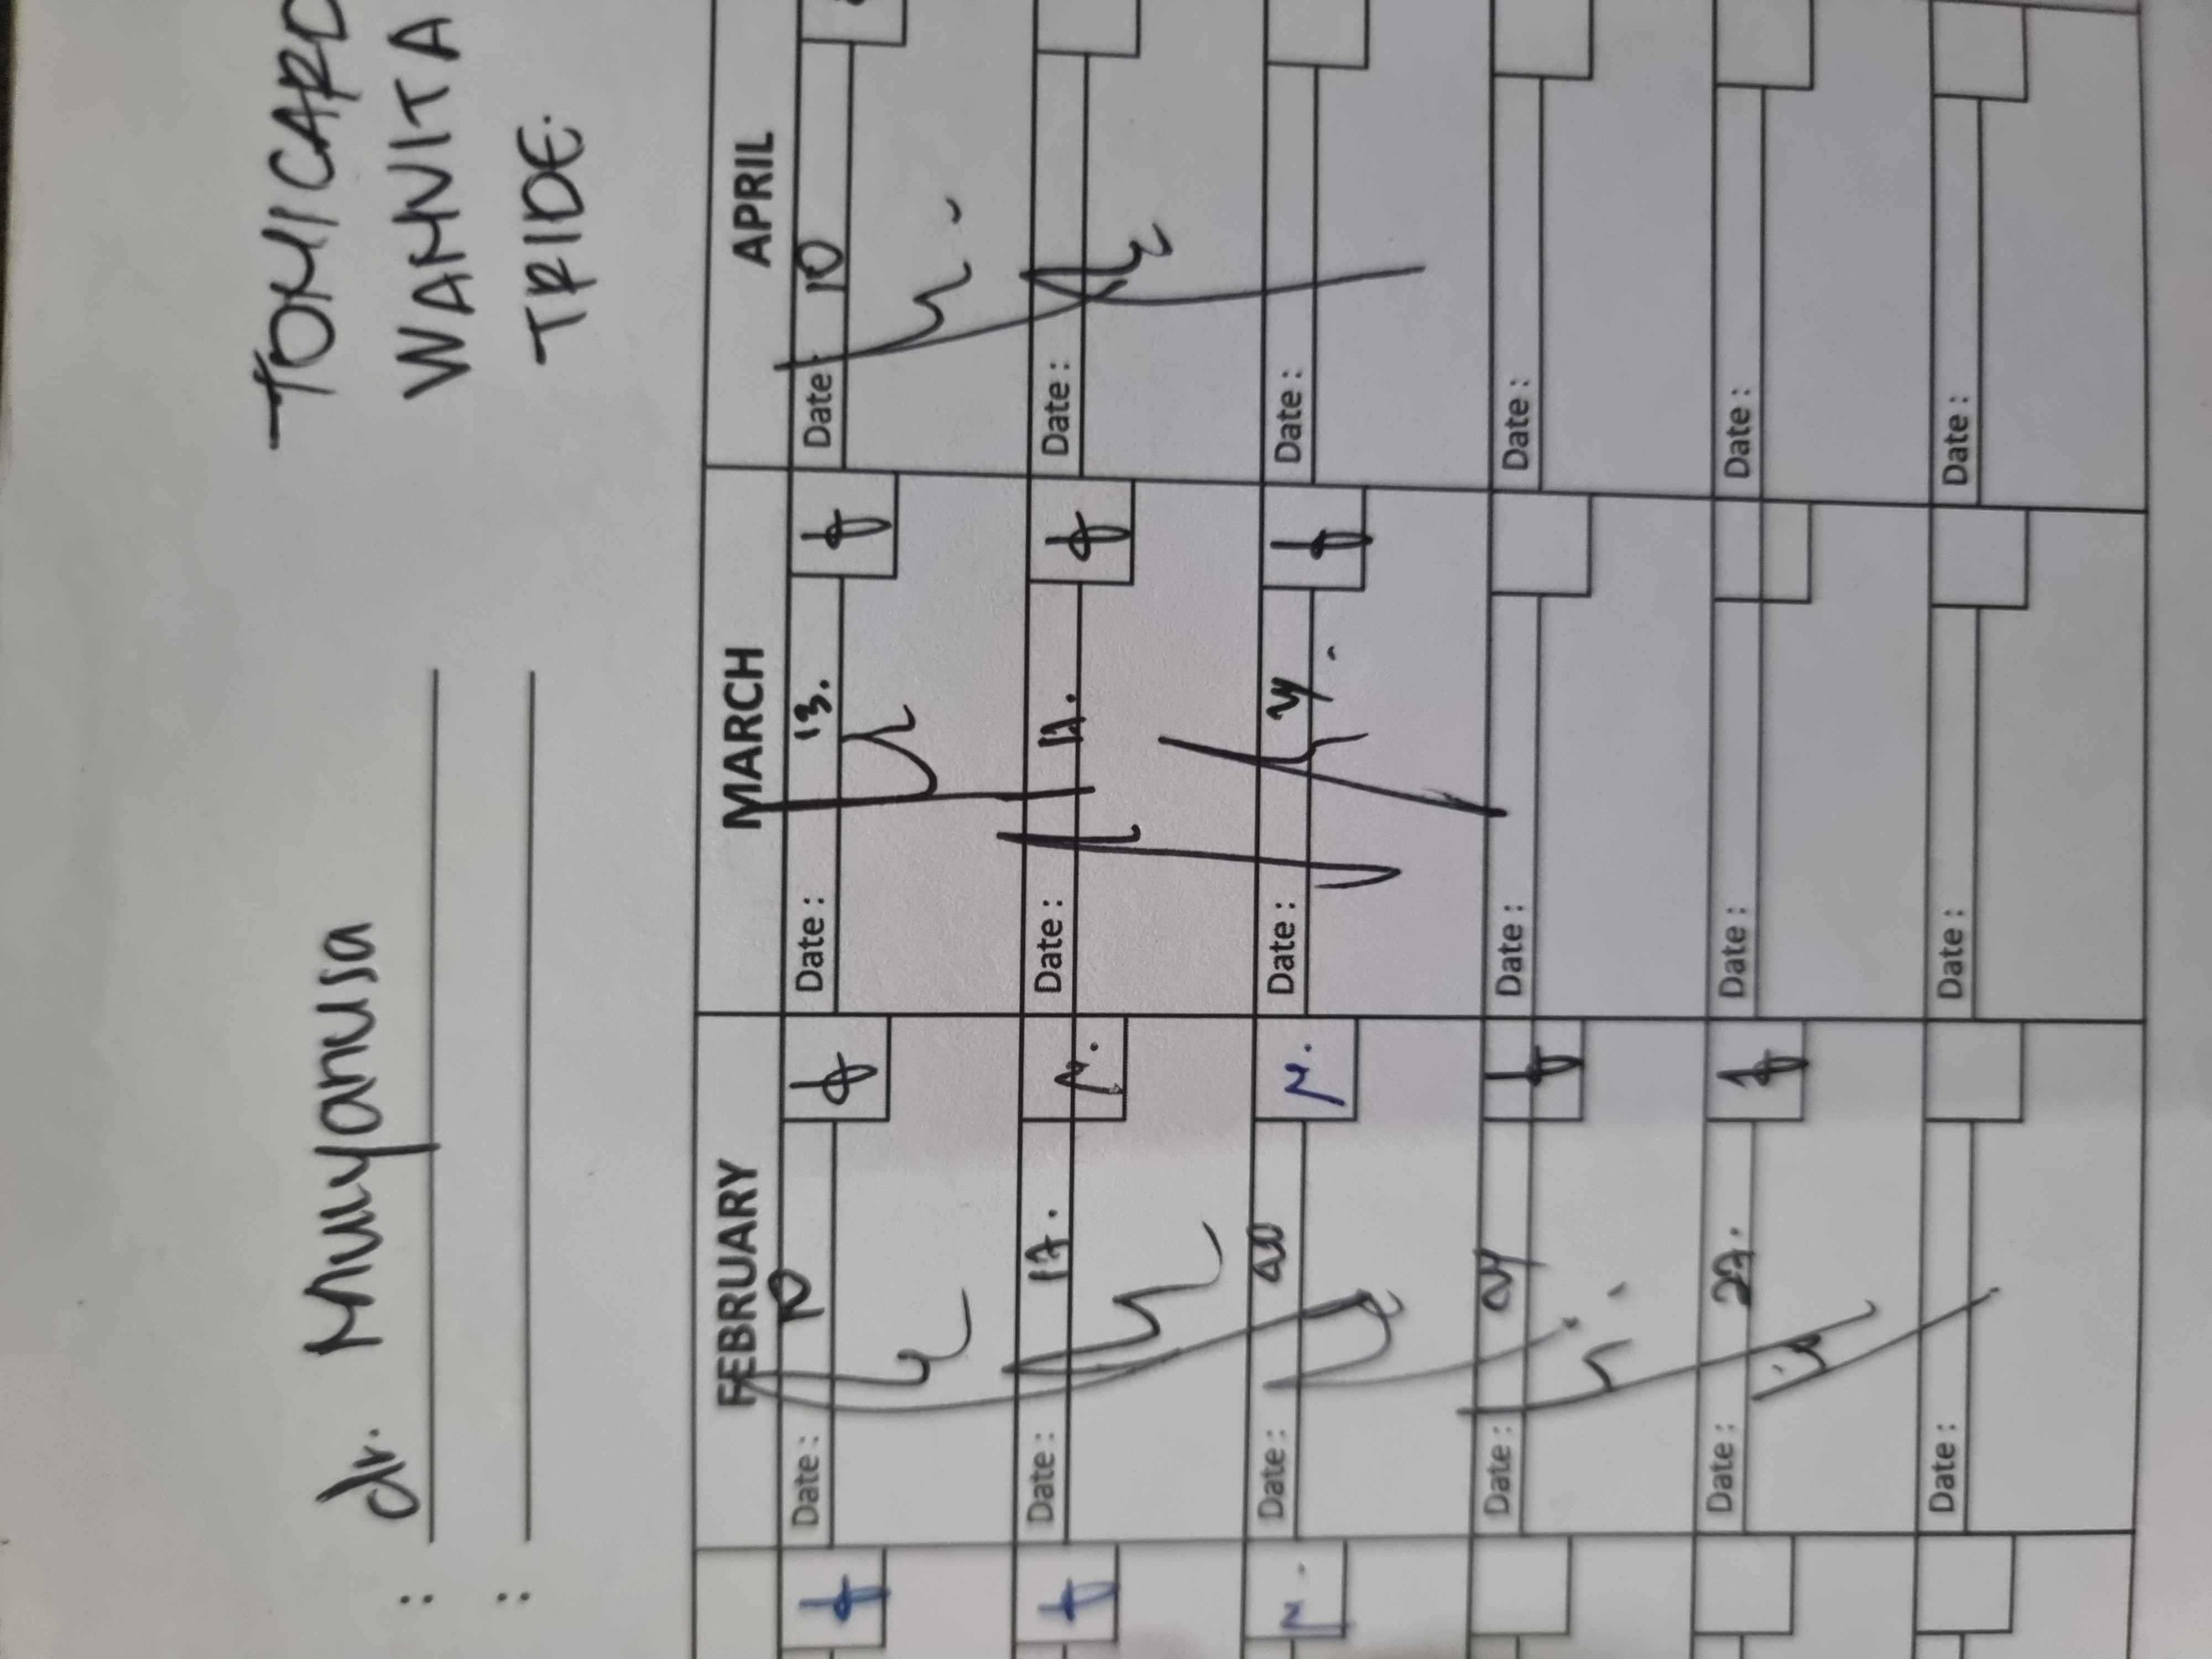 TOMICARD
WAMVITA
TRIDE.
: dr. Mulyanusa
:
FEBRUARY MARCH APRIL
Date : 10 Date : 13. Date : 10
Date : 17. Date : 17. Date :
Date : 20 Date : 24 Date :
Date : 24 Date : Date :
Date : 27. Date : Date :
Date : Date : Date :